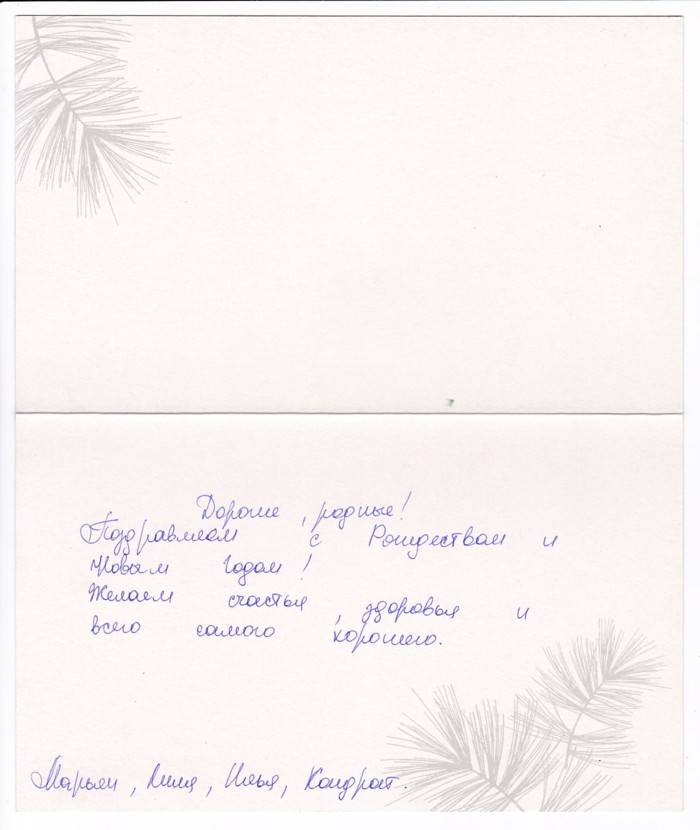 Дорогие, родные!
Поздравляем с Рождеством и
Новым Годом!
Желаем счастья, здоровья и
всего самого хорошего.
Марьян, Лиля, Илья, Кондрат.